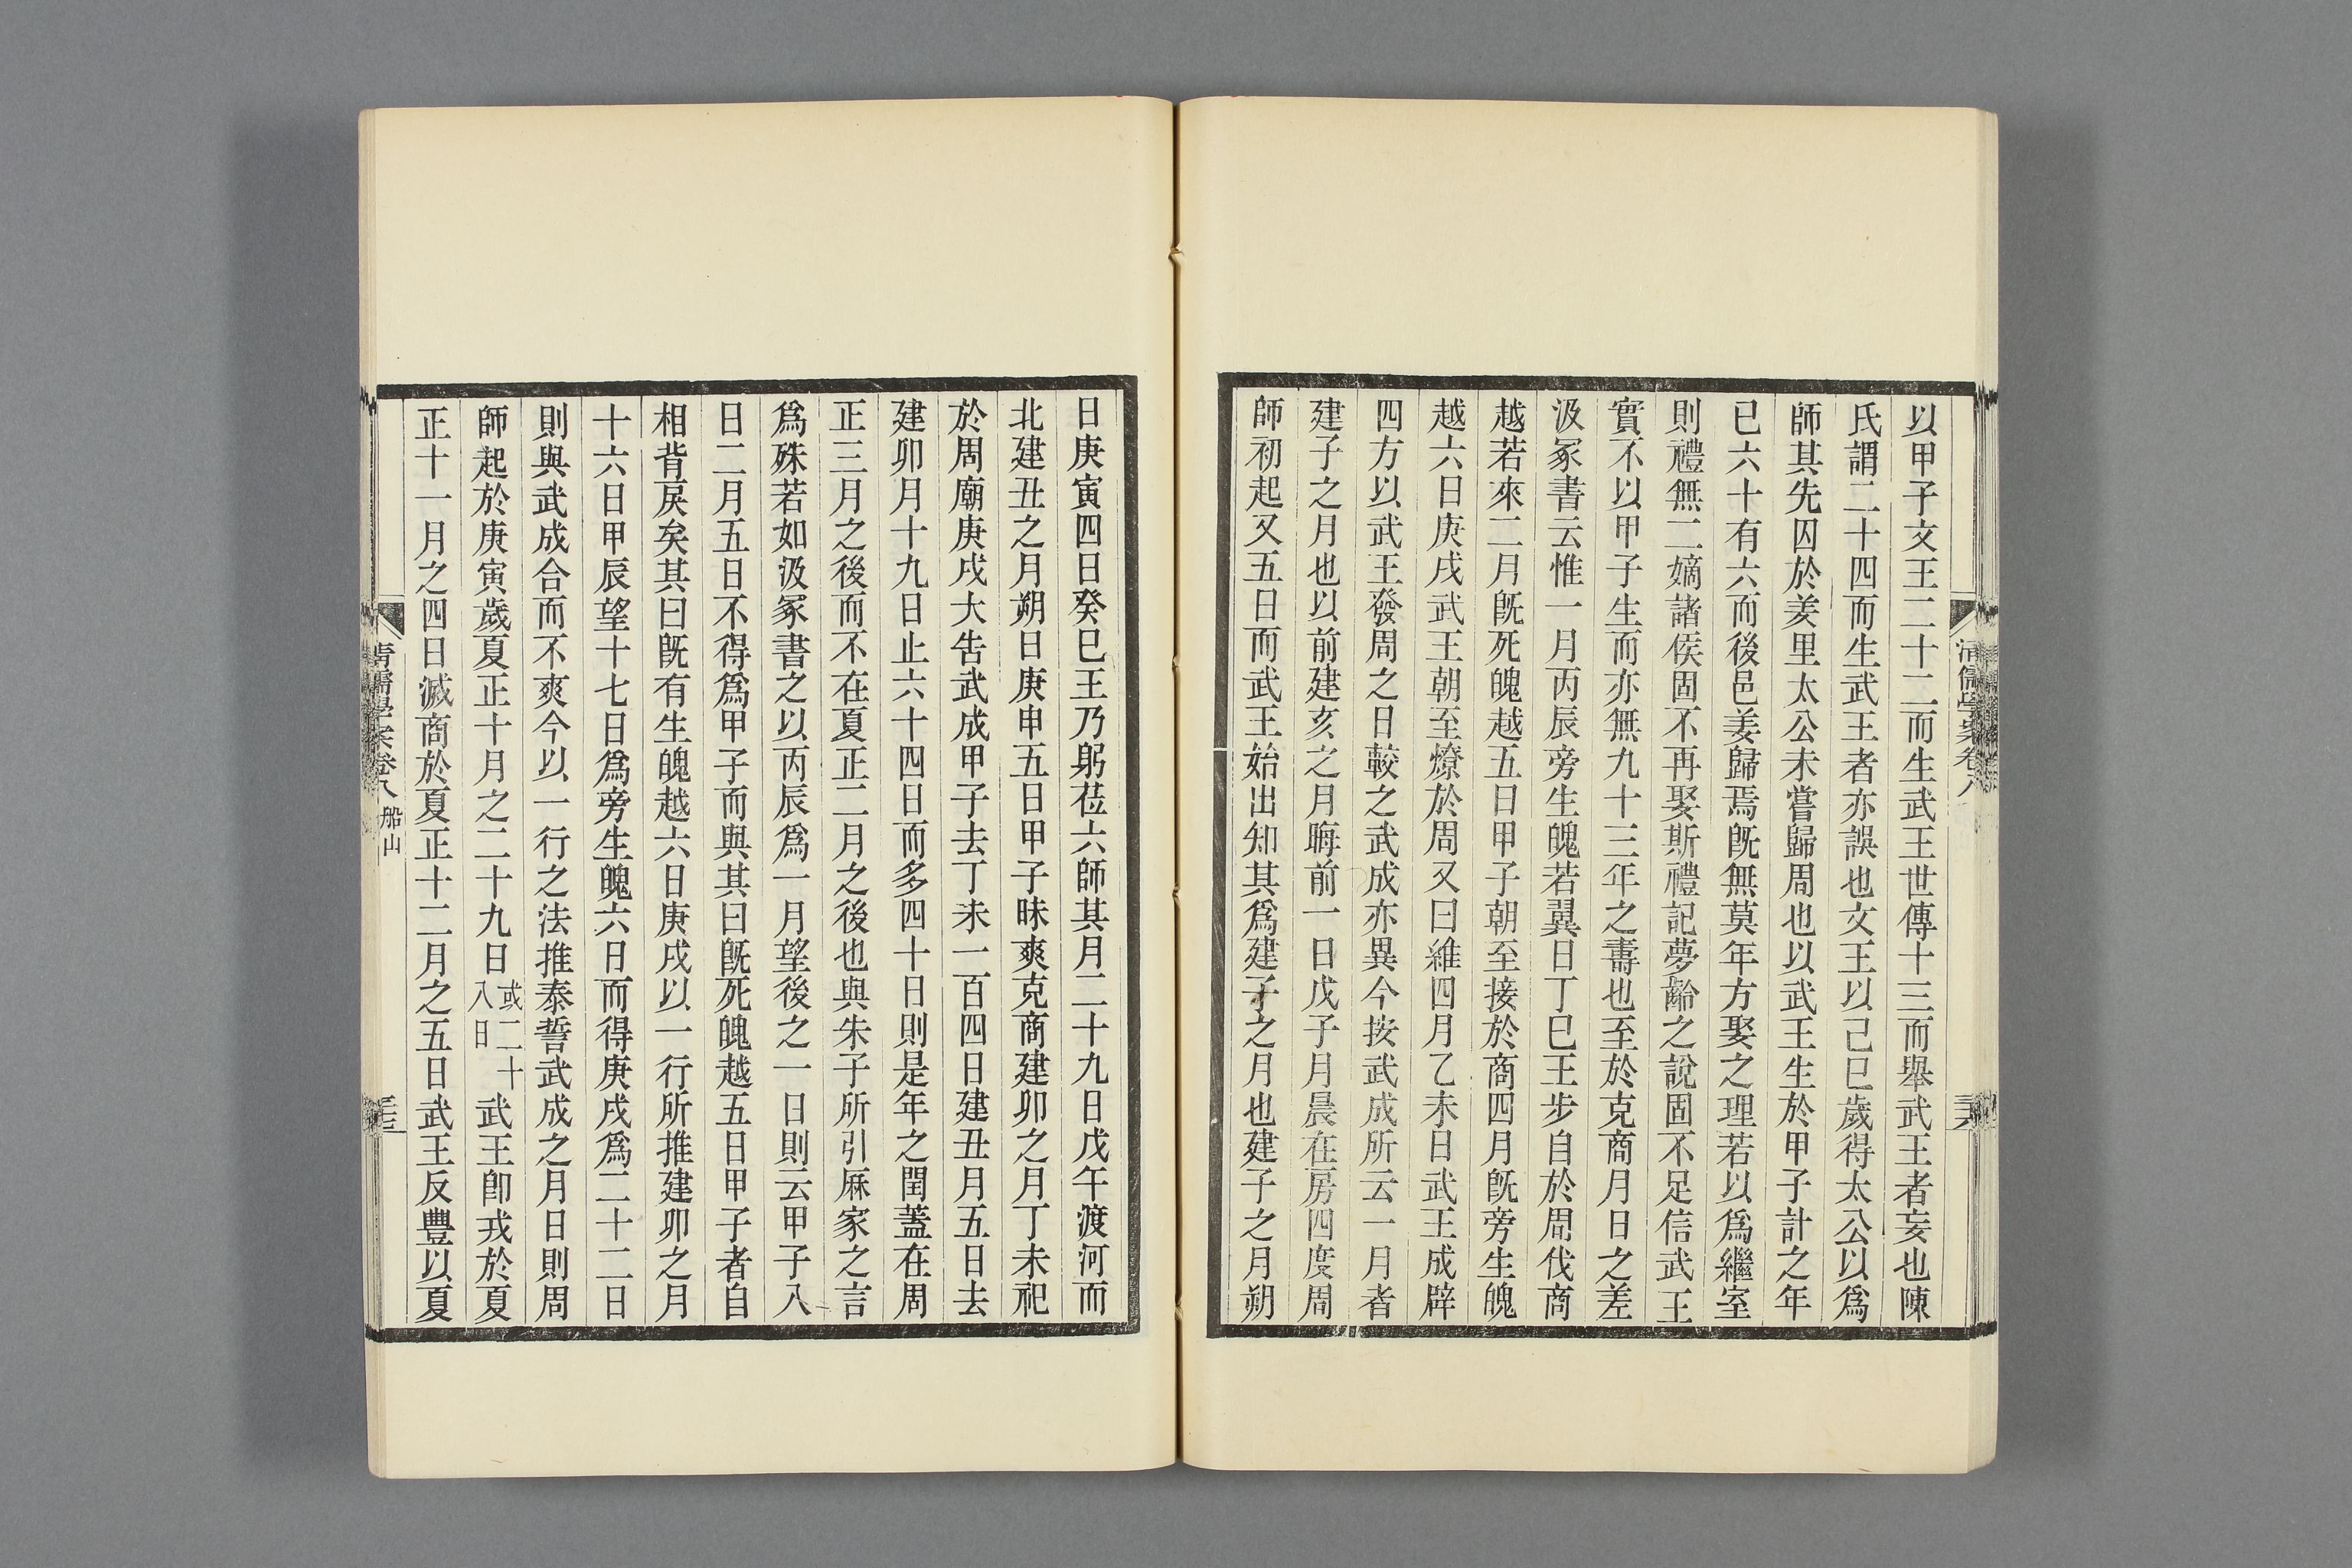 以甲子文王二十二而生武王世傳十三而舉武王者妄也陳
氏謂二十四而生武王者亦誤也文王以己巳歲得太公以爲
師其先囚於羑里太公未嘗歸周也以武王生於甲子計之年
已六十有六而後邑姜歸焉旣無莫年方娶之理若以爲繼室
則禮無二嫡諸侯固不再娶斯禮記夢齡之說固不足信武王
實不以甲子生而亦無九十三年之壽也至於克商月日之差
汲冢書云惟一月丙辰旁生魄若翼日丁巳王步自於周伐商
越若來二月旣死魄越五日甲子朝至接於商四月旣旁生魄
越六日庚戌武王朝至燎於周又曰維四月乙未日武王成辟
四方以武王發周之日較之武成亦異今按武成所云一月者
建子之月也以前建亥之月晦前一日戊子月晨在房四度周
師初起又五日而武王始出知其爲建子之月也建子之月朔
清儒學案卷八
日庚寅四日癸巳王乃躬莅六師其月二十九日戊午渡河而
北建丑之月朔日庚申五日甲子昧爽克商建卯之月丁未祀
於周廟庚戌大告武成甲子去丁未一百四日建丑月五日去
建卯月十九日止六十四日而多四十日則是年之閏蓋在周
正三月之後而不在夏正二月之後也與朱子所引厤家之言
爲殊若如汲冢書之以丙辰爲一月望後之一日則云甲子八
日二月五日不得爲甲子而與其曰旣死魄越五日甲子者自
相背戾矣其曰旣有生魄越六日庚戌以一行所推建卯之月
十六日甲辰望十七日爲旁生魄六日而得庚戌爲二十二日
則與武成合而不爽今以一行之法推泰誓武成之月日則周
師起於庚寅歲夏正十月之二十九日或二十八日武王卽戎於夏
正十一月之四日滅商於夏正十二月之五日武王反豐以夏
清儒學案卷八 船山